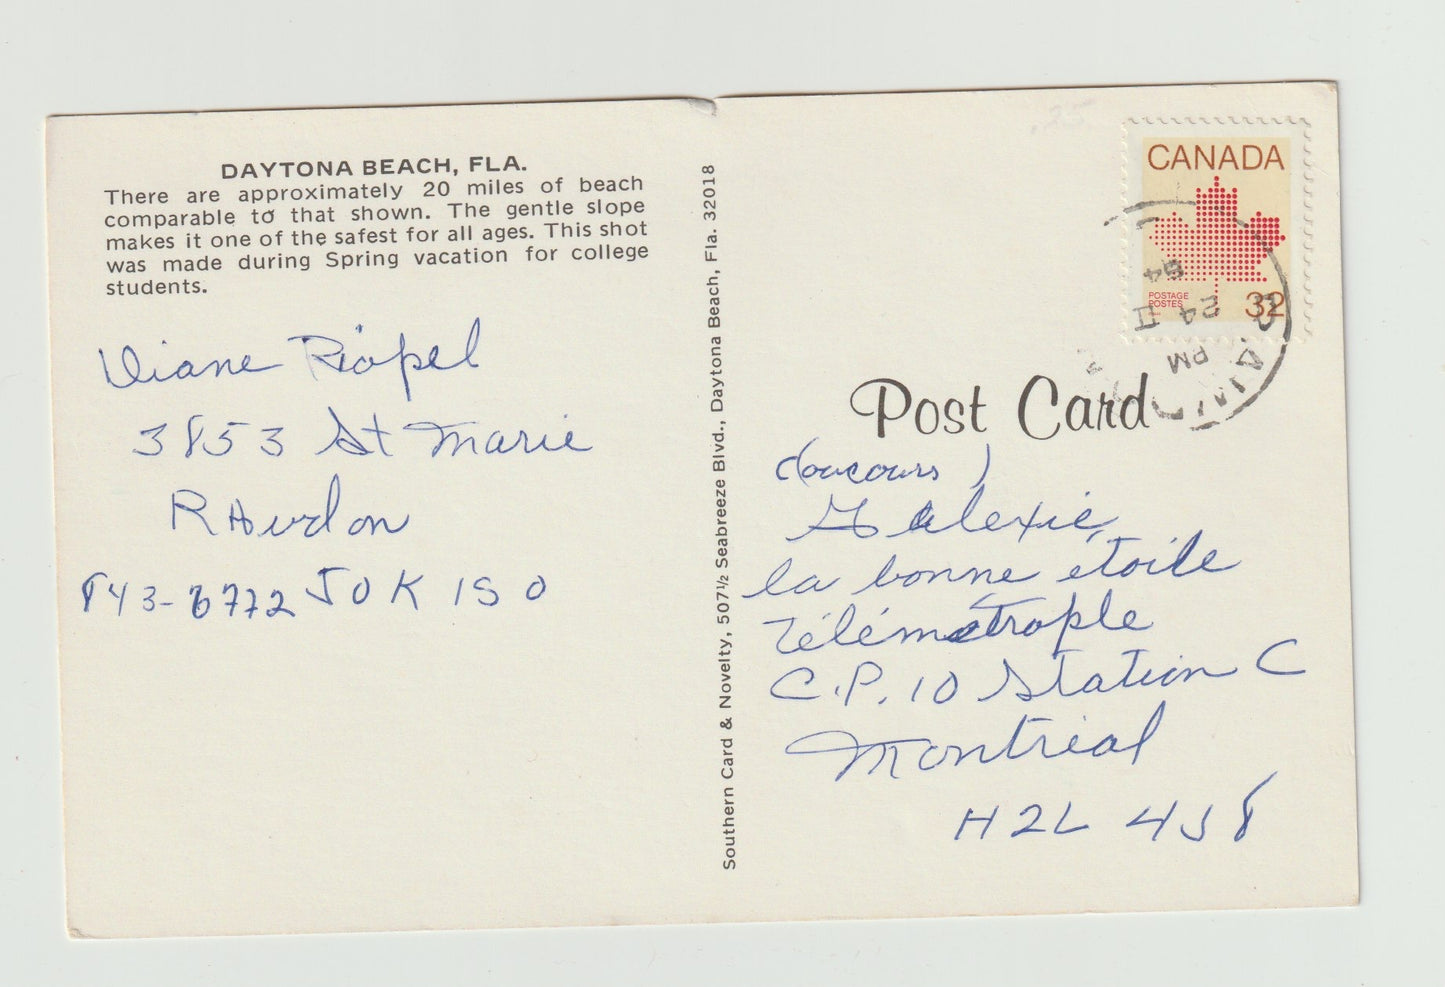 DAYTONA BEACH, FLA.
There are approximately 20 miles of beach
comparable to that shown. The gentle slope
makes it one of the safest for all ages. This shot
was made during Spring vacation for college
students.
Diane Riopel
3853 St Marie
RAwdon
843-6772 J0K 1S0
Southern Card & Novelty, 507½ Seabreeze Blvd., Daytona Beach, Fla. 32018
.25
CANADA
POSTAGE
POSTES
32
PM
24 II
84
Post Card
Concours
Galexie,
la bonne étoile
Télémétrople
C.P. 10 Station C
Montréal
H2L 4J8